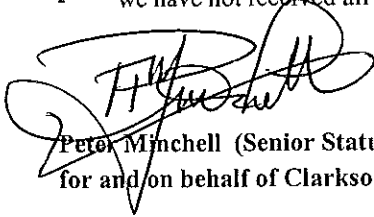 we have not received all
Peter Minchell (Senior Statu
for and on behalf of Clarkso